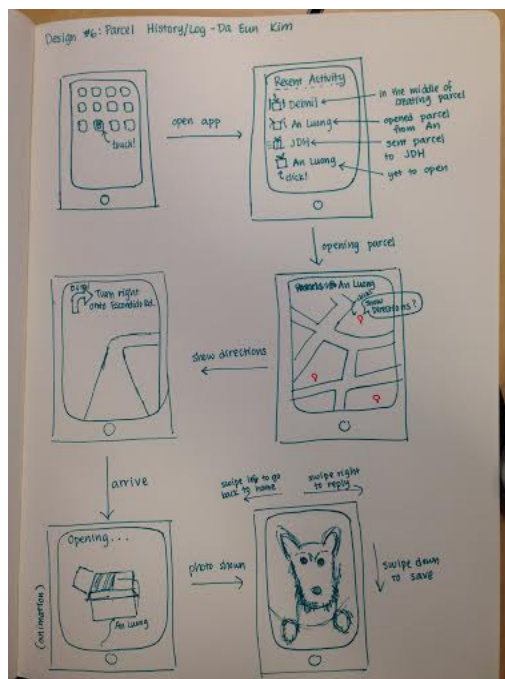 Design #6: Parcel History/Log - Da Eun Kim
touch!
open app
Recent Activity
Delmil
An Luong
JDH
An Luong
click!
in the middle of
creating parcel
opened parcel
from An
sent parcel
to JDH
yet to open
opening parcel
An Luong
Show
Directions?
show directions
Turn right
onto Escondido Rd.
arrive
Opening...
An Luong
(animation)
photo shown
swipe left to go
back to home
swipe right
to reply
swipe down
to save